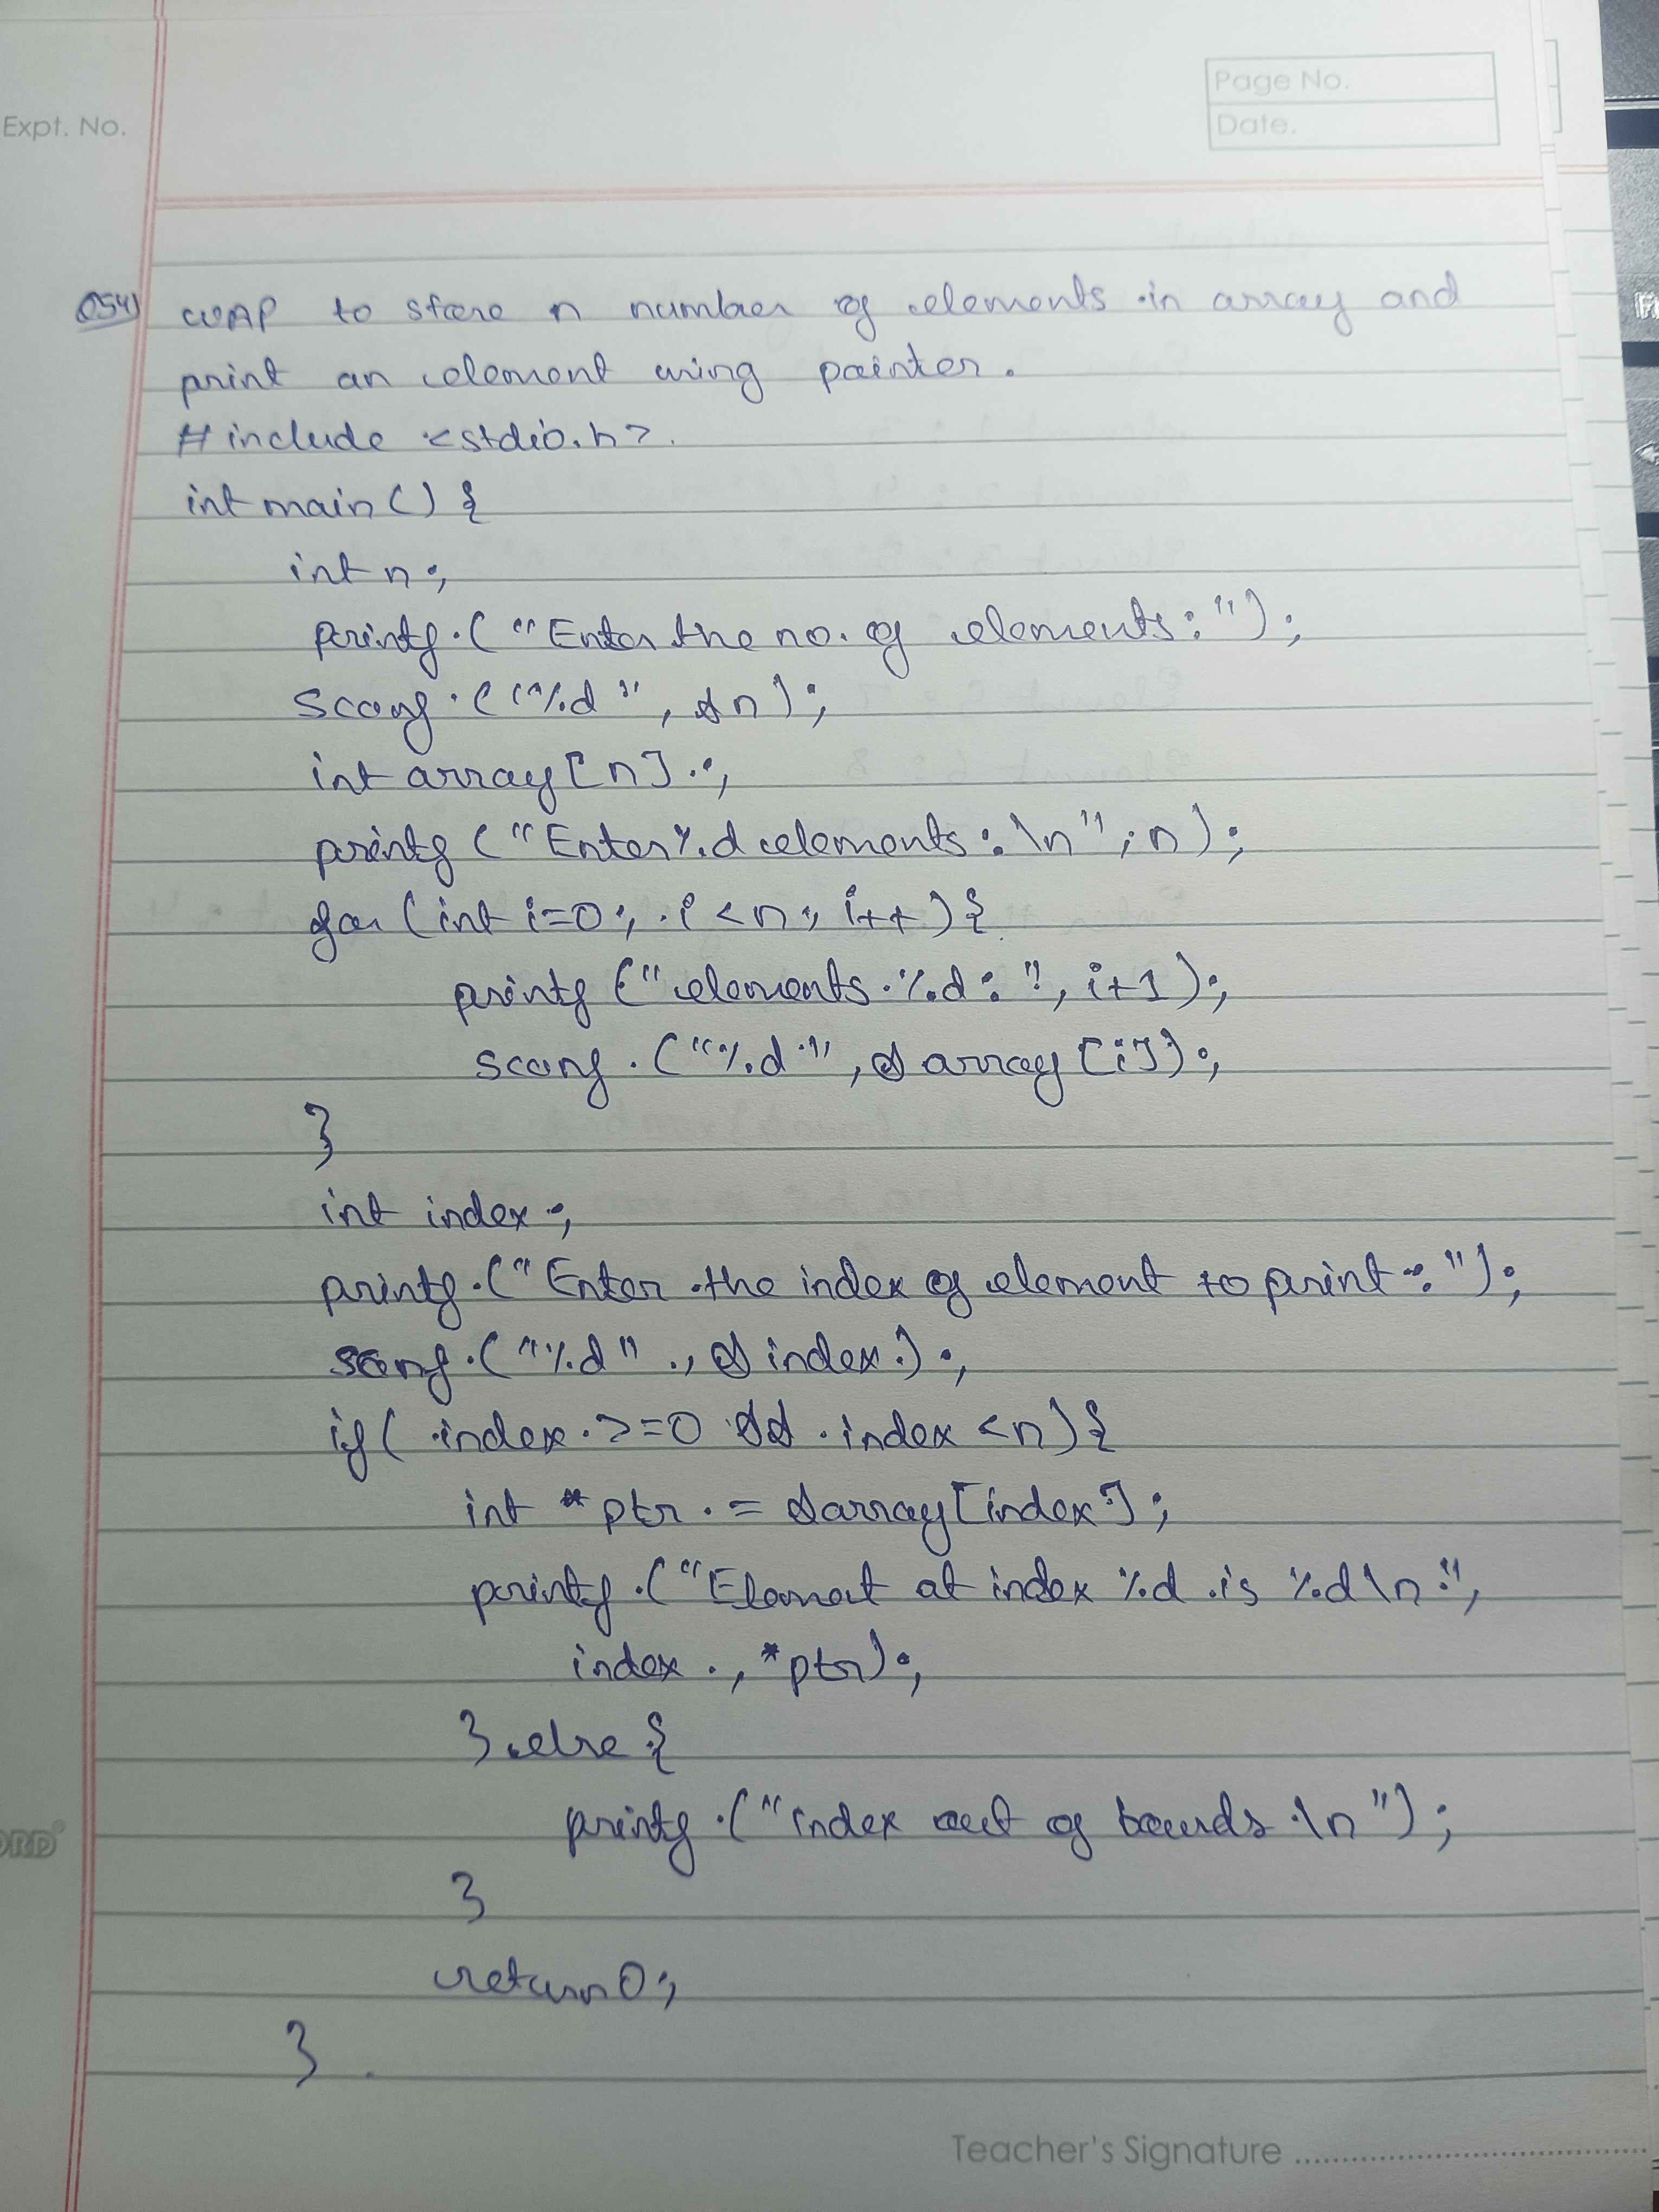 Page No.
Date.
Expt. No.
Q54) WAP to store n number of elements in array and
print an element using pointer.
#include <stdio.h>
int main() {
int n;
printf("Enter the no. of elements:");
scanf("%d", &n);
int array[n];
printf("Enter %d elements:\n"; n);
for (int i=0; i<n; i++){
printf("elements %d:", i+1);
scanf("%d", &array[i]);
}
int index;
printf("Enter the index of element to print:");
scanf("%d", &index);
if( index >=0 && index <n){
int *ptr = &array[index];
printf("Element at index %d is %d\n",
index, *ptr);
} else {
printf("index out of bounds \n");
}
return 0;
}
Teacher's Signature